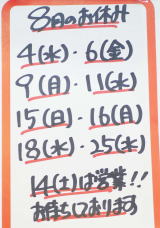 8月のお休み
4(水)・6(金)
9(月)・11(水)
15(日)・16(月)
18(水)・25(水)
14(土)は営業!!
お待ちしております